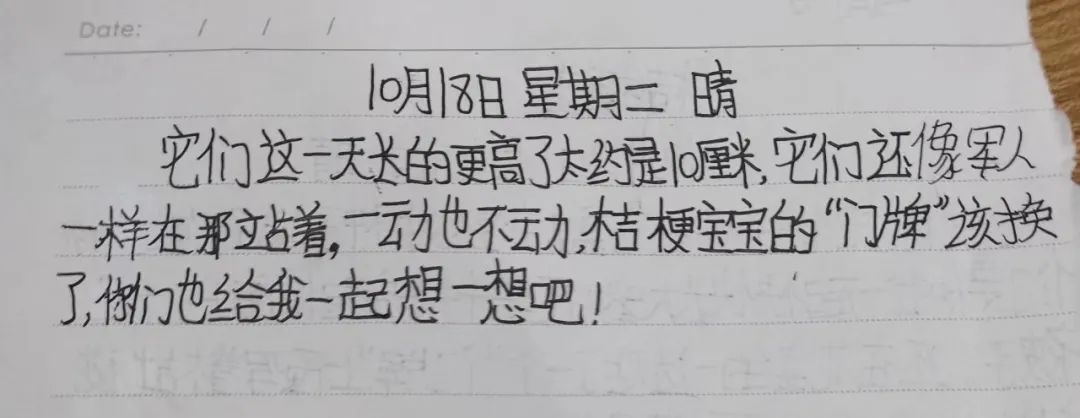 Date: / / /
10月18日 星期二 晴
它们这一天长的更高了太约是10厘米,它们还像军人
一样在那站着,一动也不动,桔梗宝宝的“门牌”该换
了,你们也给我一起想一想吧!